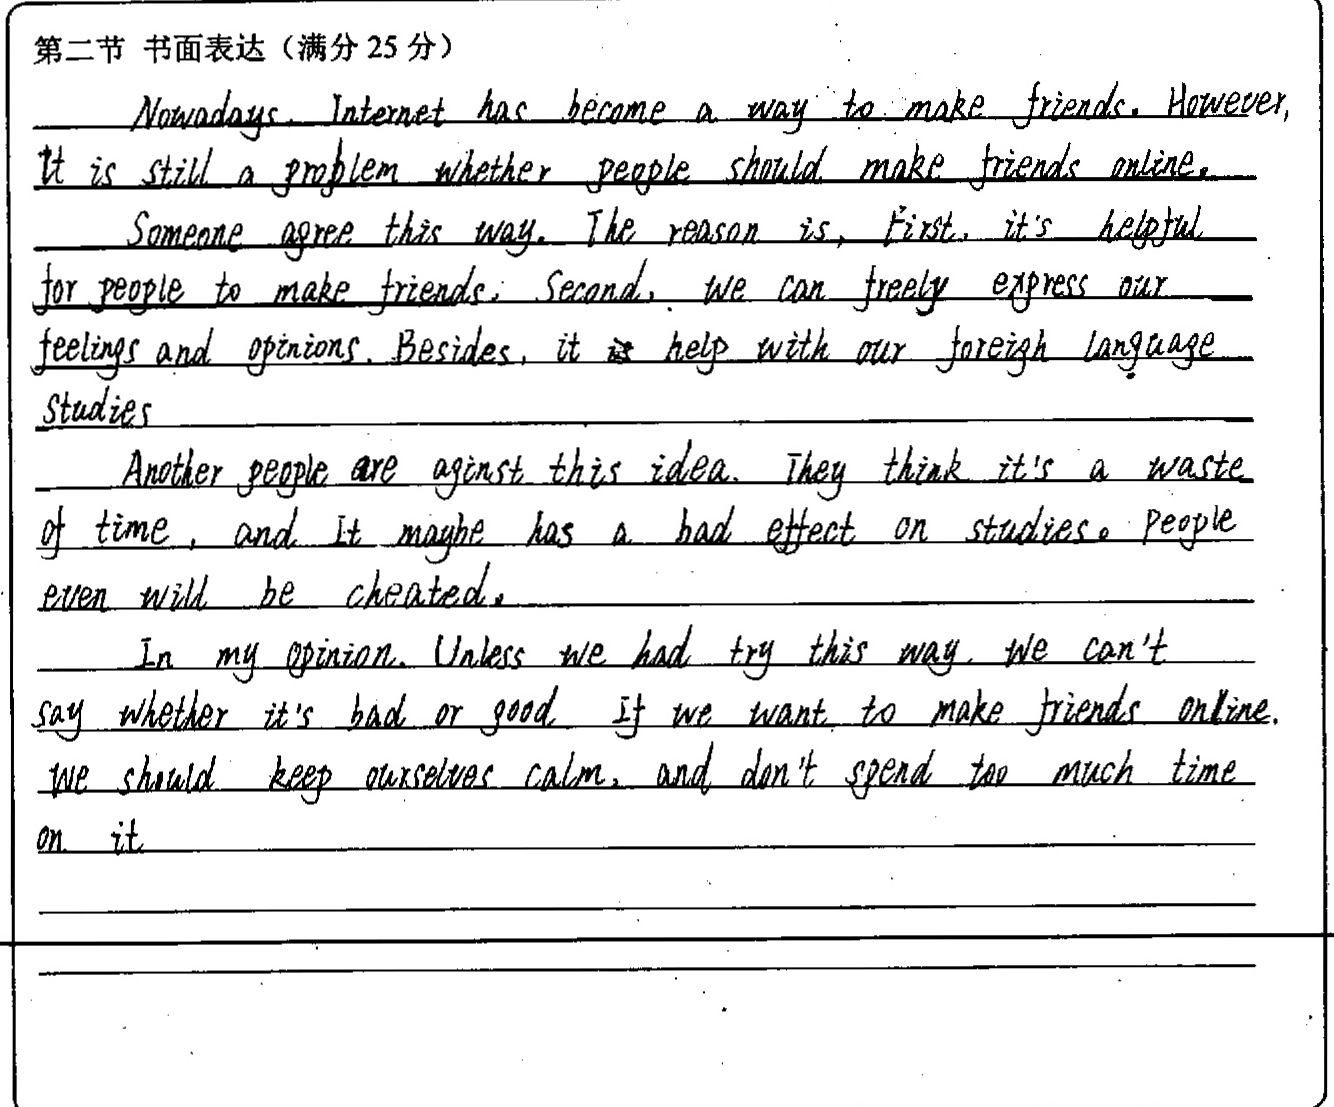 第二节 书面表达（满分 25 分）
Nowadays. Internet has become a way to make friends. However,
It is still a problem whether people should make friends online.
Someone agree this way. The reason is, First, it's helpful
for people to make friends. Second, we can freely express our
feelings and opinions. Besides, it is help with our foreigh language
studies
Another people are aginst this idea. They think it's a waste
of time, and It maybe has a bad effect on studies. People
even will be cheated.
In my opinion. Unless we had try this way. We can't
say whether it's bad or good If we want to make friends online.
We should keep ourselves calm, and don't spend too much time
on it